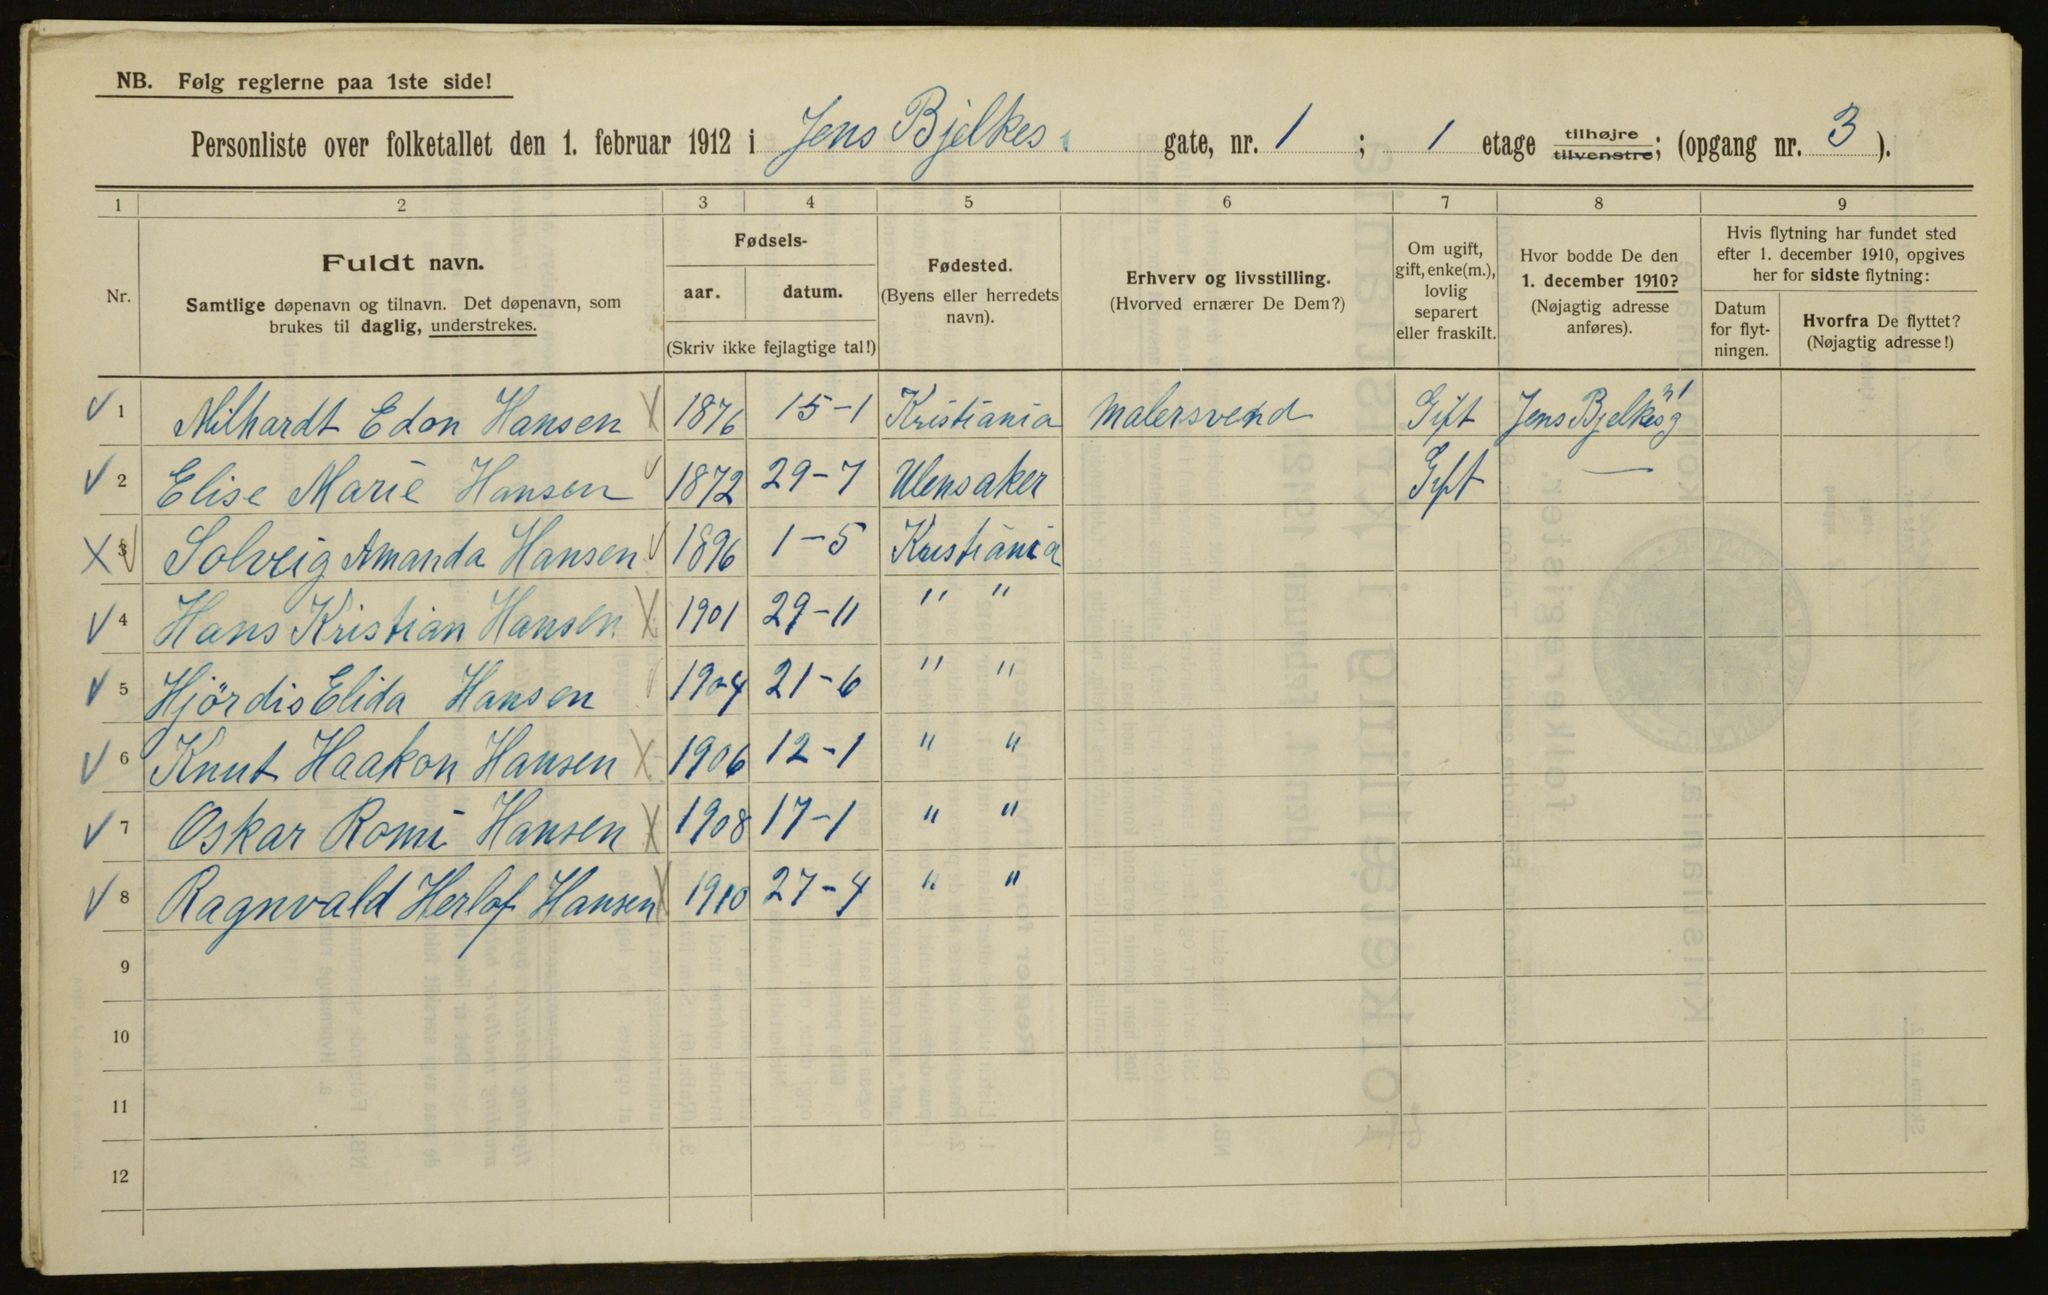 NB. Følg reglerne paa 1ste side!
Personliste over folketallet den 1. februar 1912 i Jens Bjelkes gate, nr. 1 ; 1 etage tilhøjre tilvenstre; (opgang nr. 3 ).
1 2 3 4 5 6 7 8 9
Nr.
Fuldt navn.
Samtlige døpenavn og tilnavn. Det døpenavn, som
brukes til daglig, understrekes.
Fødsels-
aar. datum.
(Skriv ikke fejlagtige tal!)
Fødested.
(Byens eller herredets
navn).
Erhverv og livsstilling.
(Hvorved ernærer De Dem?)
Om ugift,
gift, enke(m.),
lovlig
separert
eller fraskilt.
Hvor bodde De den
1. december 1910?
(Nøjagtig adresse
anføres).
Hvis flytning har fundet sted
efter 1. december 1910, opgives
her for sidste flytning:
Datum
for flyt-
ningen.
Hvorfra De flyttet?
(Nøjagtig adresse!)
1 Milhardt Edon Hansen 1876 15-1 Kristiania Malersvend Gift Jens Bjelkes g
2 Elise Marie Hansen 1872 29-7 Ulensaker Gift —
3 Solveig Amanda Hansen 1896 1-5 Kristiania
4 Hans Kristian Hansen 1901 29-11 " "
5 Hjördis Elida Hansen 1904 21-6 " "
6 Knut Haakon Hansen 1906 12-1 " "
7 Oskar Romi Hansen 1908 17-1 " "
8 Ragnvald Herlof Hansen 1910 27-4 " "
9
10
11
12